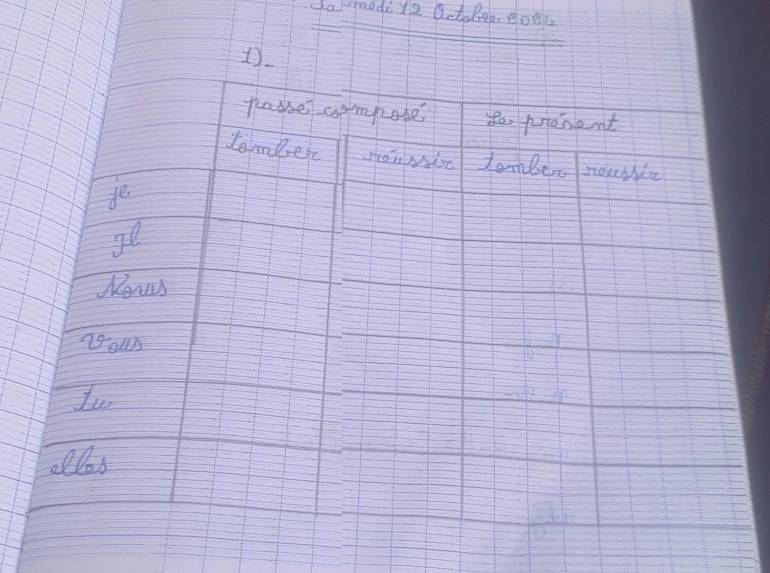 Samedi 12 Octobre 2024
1)-
passé-composé Le présent
tomber réussir tomber reussir
je
Il
Nous
Vous
tu
elles